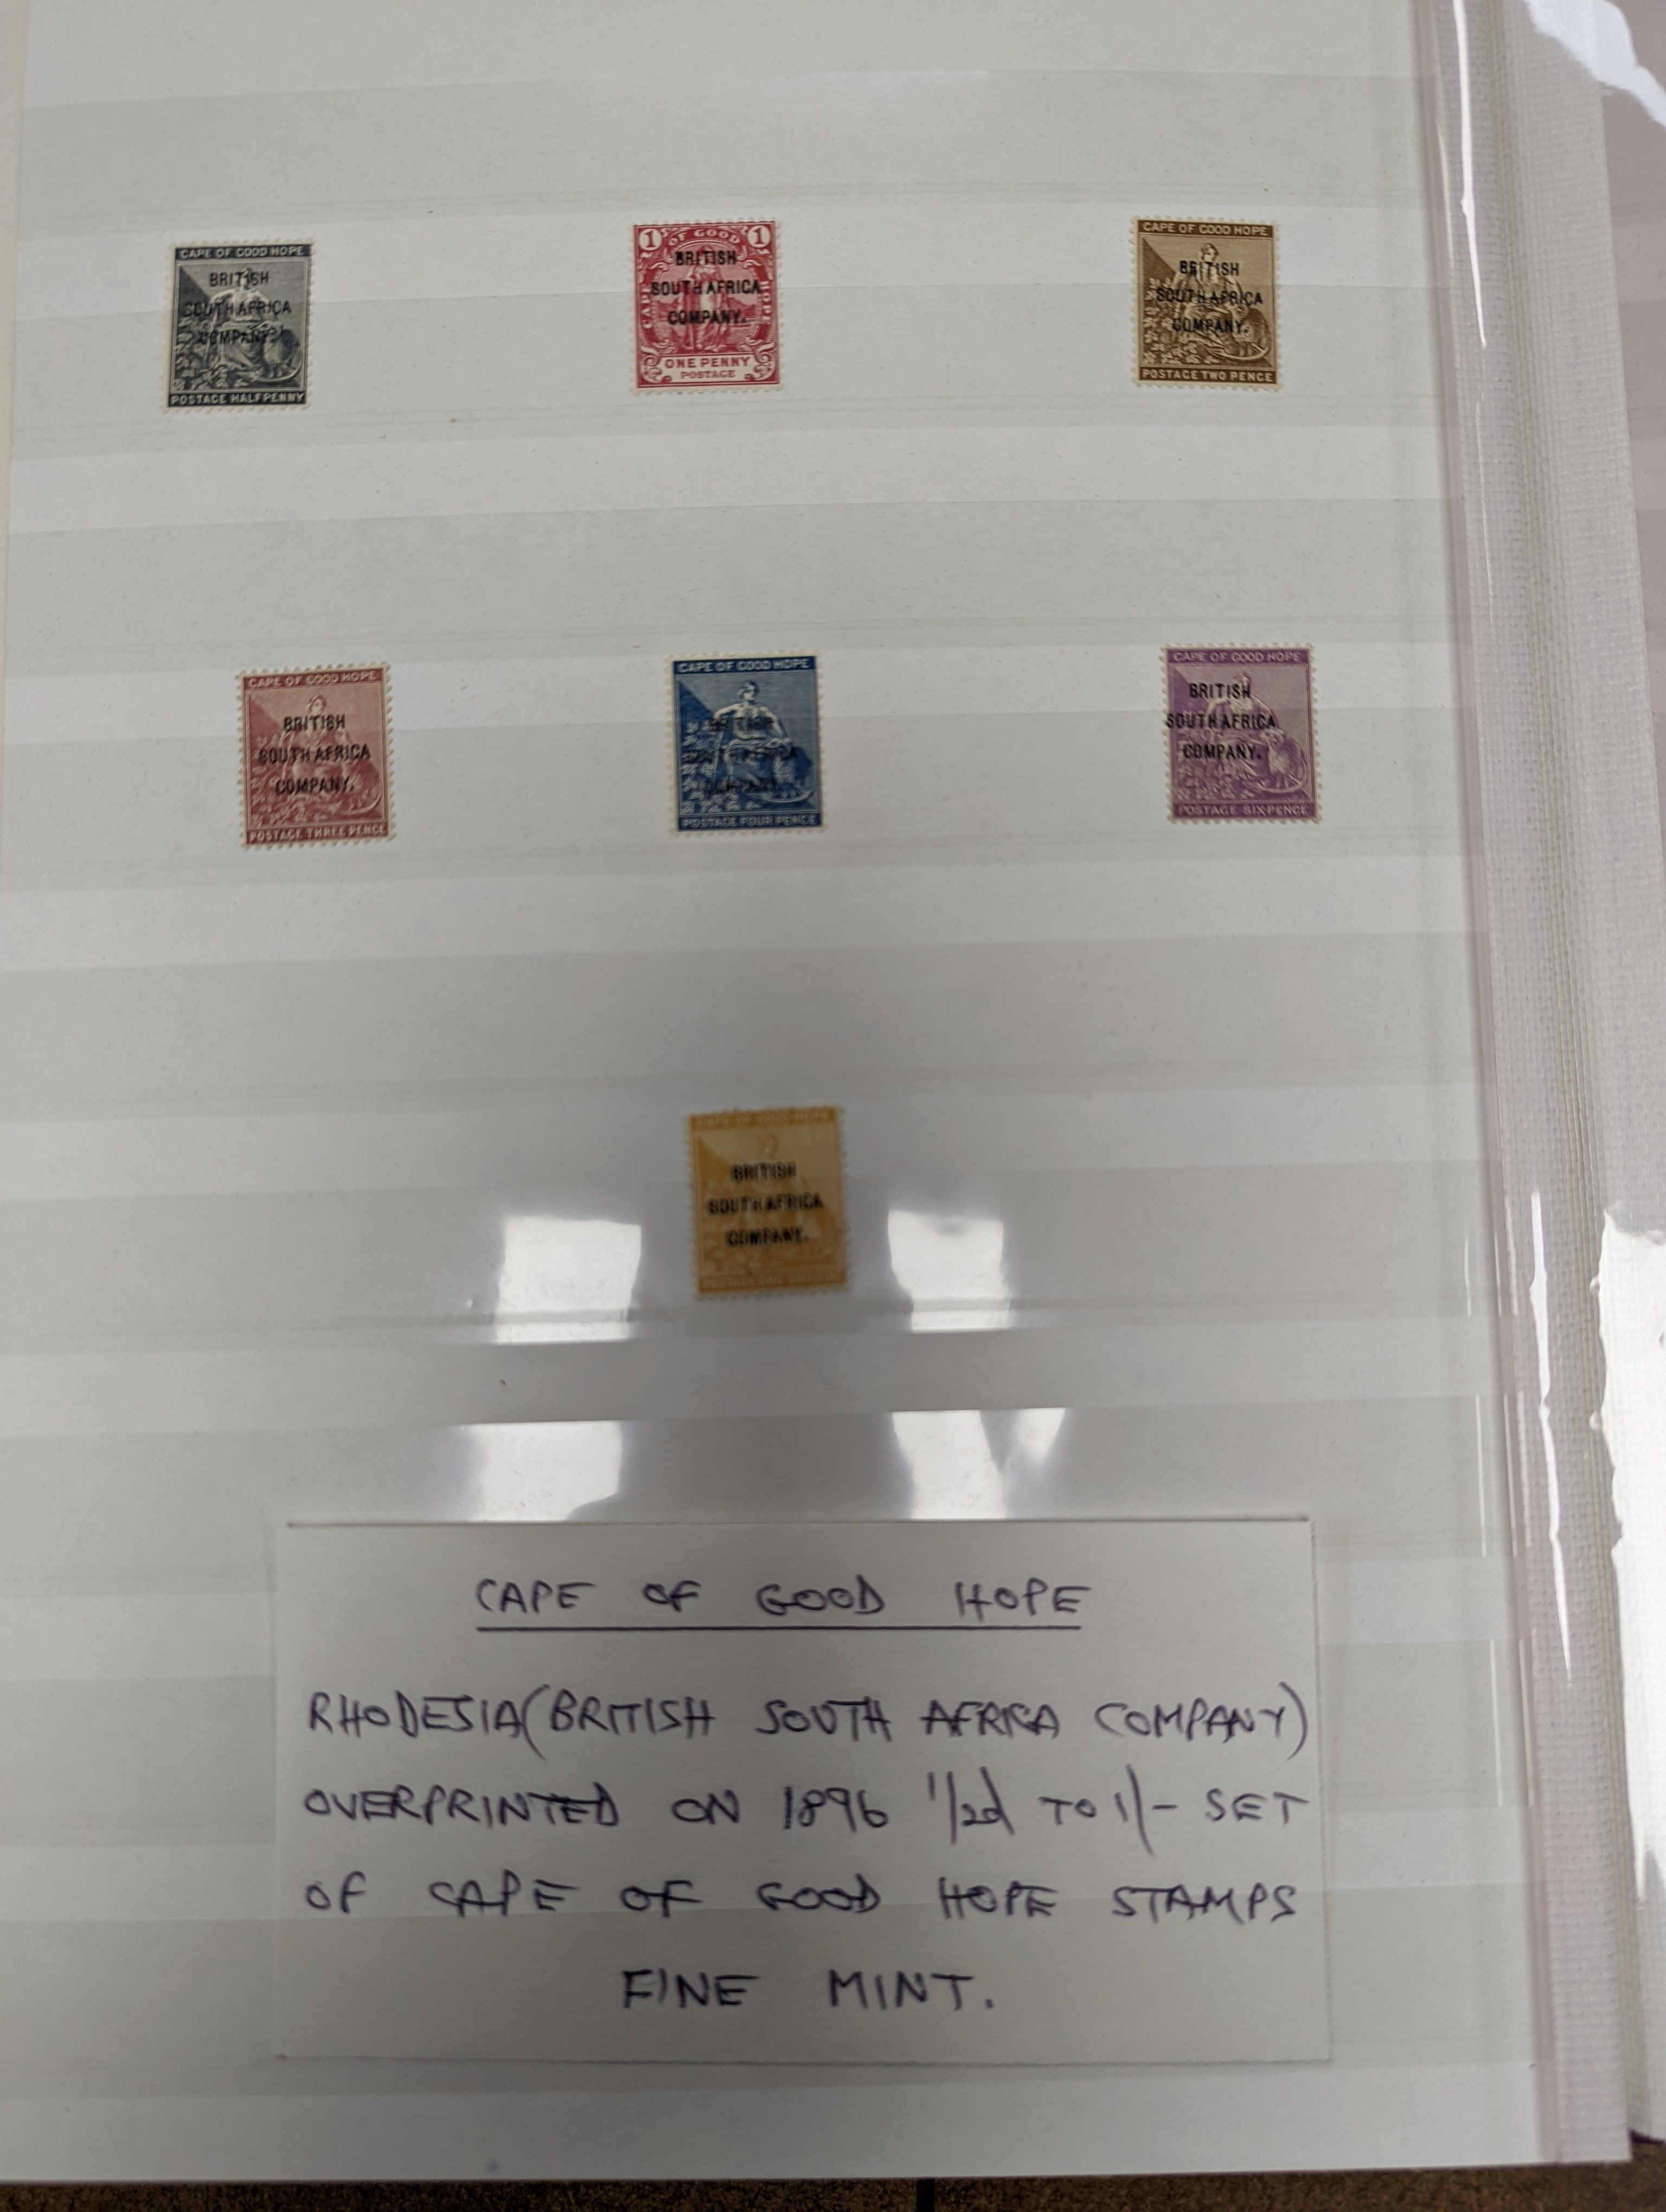 CAPE OF GOOD HOPE
BRITISH
SOUTH AFRICA
COMPANY.
POSTAGE HALFPENNY
1 OF GOOD 1
CAPE HOPE
BRITISH
SOUTH AFRICA
COMPANY.
ONE PENNY
POSTAGE
CAPE OF GOOD HOPE
BRITISH
SOUTH AFRICA
COMPANY.
POSTAGE TWO PENCE
CAPE OF GOOD HOPE
BRITISH
SOUTH AFRICA
COMPANY.
POSTAGE THREE PENCE
CAPE OF GOOD HOPE
BRITISH
SOUTH AFRICA
COMPANY.
POSTAGE FOUR PENCE
CAPE OF GOOD HOPE
BRITISH
SOUTH AFRICA
COMPANY.
POSTAGE SIXPENCE
CAPE OF GOOD HOPE
BRITISH
SOUTH AFRICA
COMPANY.
POSTAGE ONE SHILLING
CAPE OF GOOD HOPE
RHODESIA (BRITISH SOUTH AFRICA COMPANY)
OVERPRINTED ON 1896 1/2d TO 1/- SET
OF CAPE OF GOOD HOPE STAMPS
FINE MINT.